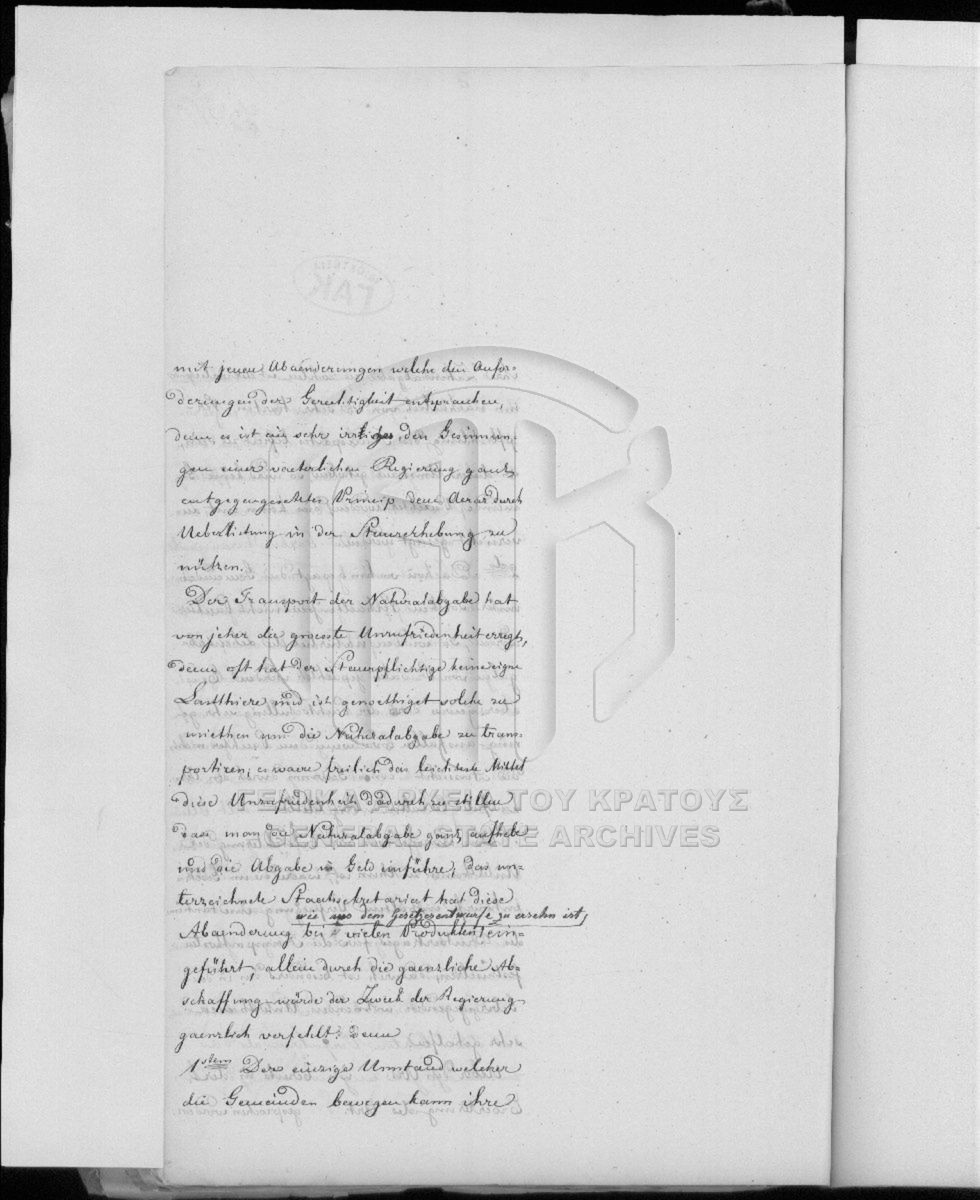 mit jenen Abaenderungen welche den Anfor-
derungen der Gerechtigkeit entsprechen,
denn es ist ein sehr irrtiges, den Gesinnun-
gen einer vaeterlichen Regierung ganz
entgegengesetztes Princip dem Aerar durch
Ueberlistung in der Steuererhebung zu
nützen.
Der Transport der Naturalabgabe hat
von jeher die groesste Unzufriedenheit erregt,
denn oft hat der Steuerpflichtige keine eigne
Lastthiere und ist genoethiget solche zu
miethen um die Naturalabgabe zu trans-
portiren; es waere freilich das leichteste Mittel
diese Unzufriedenheit dadurch zu stillen
dass man die Naturalabgabe ganz aufhebe
und die Abgabe in Geld einführe; das un-
terzeichnete Staatssekretariat hat diese
wie aus dem Gesetzesentwurfe zu ersehn ist,
Abaenderung bei vielen Produkten ein-
geführt, allein durch die gaenzliche Ab-
schaffung würde der Zweck der Regierung
gaenzlich verfehlt: denn
1stens Der einzige Umstand welcher
die Gemeinden bewegen kann ihre
ΓΑΚ
ΓΕΝΙΚΑ ΑΡΧΕΙΑ ΤΟΥ ΚΡΑΤΟΥΣ
GENERAL STATE ARCHIVES